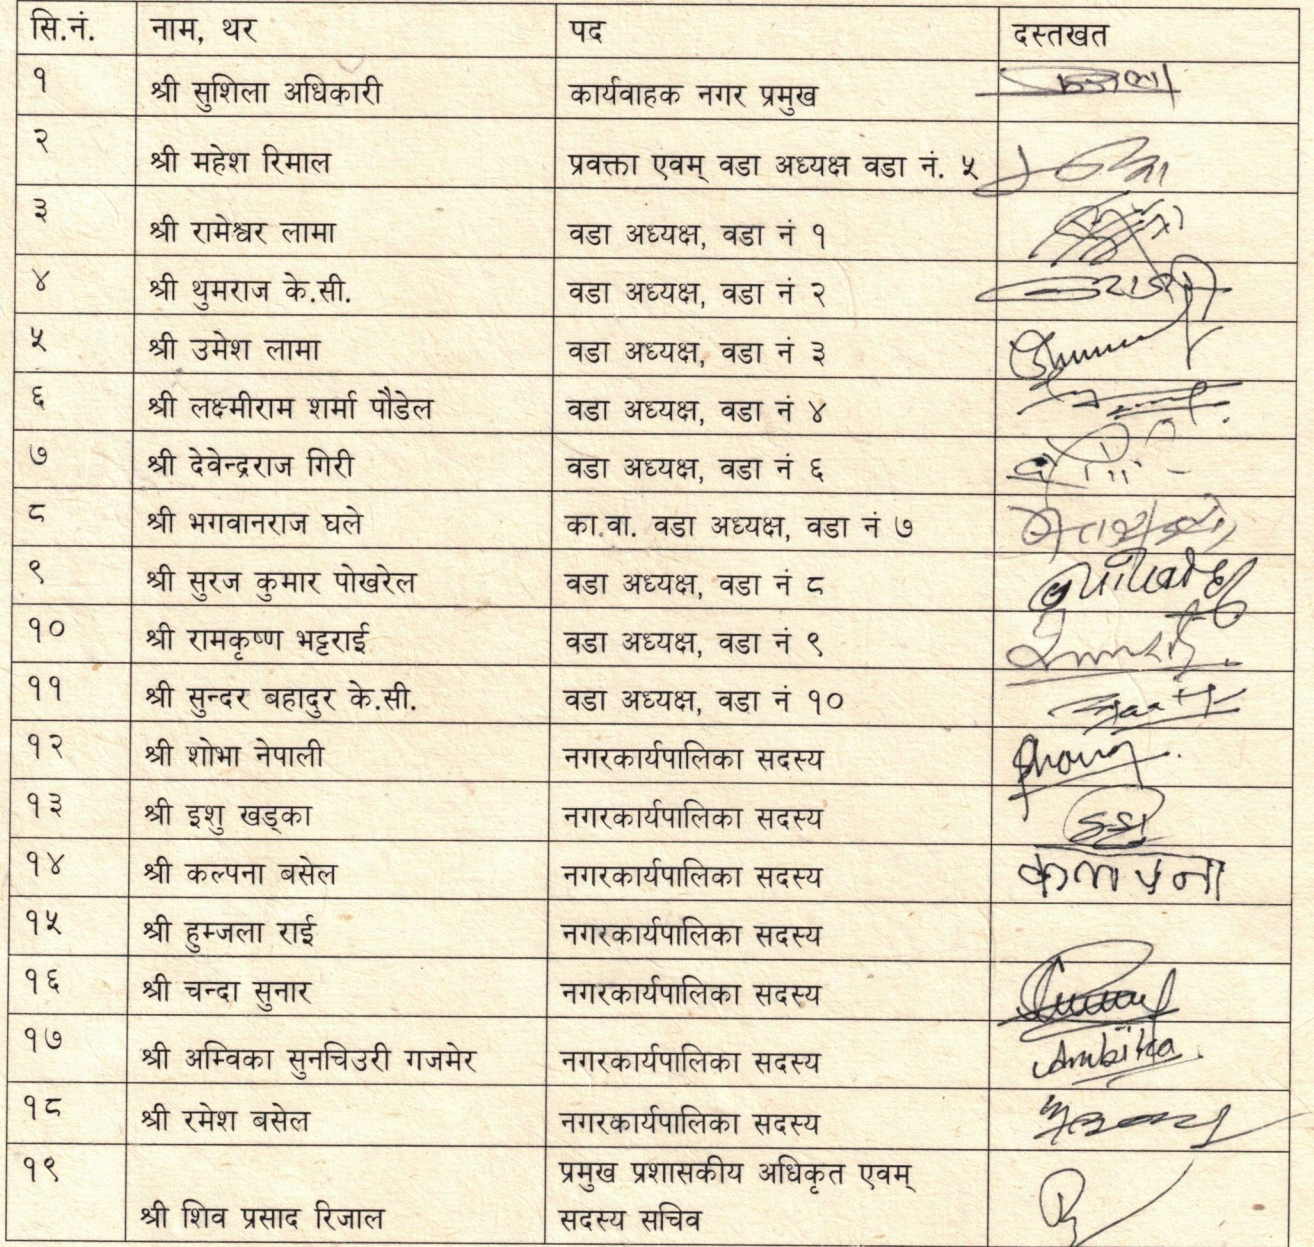 सि.नं. नाम, थर पद दस्तखत
१ श्री सुशिला अधिकारी कार्यवाहक नगर प्रमुख
२ श्री महेश रिमाल प्रवक्ता एवम् वडा अध्यक्ष वडा नं. ५
३ श्री रामेश्वर लामा वडा अध्यक्ष, वडा नं १
४ श्री थुमराज के.सी. वडा अध्यक्ष, वडा नं २
५ श्री उमेश लामा वडा अध्यक्ष, वडा नं ३
६ श्री लक्ष्मीराम शर्मा पौडेल वडा अध्यक्ष, वडा नं ४
७ श्री देवेन्द्रराज गिरी वडा अध्यक्ष, वडा नं ६
८ श्री भगवानराज घले का.वा. वडा अध्यक्ष, वडा नं ७
९ श्री सुरज कुमार पोखरेल वडा अध्यक्ष, वडा नं ८
१० श्री रामकृष्ण भट्टराई वडा अध्यक्ष, वडा नं ९
११ श्री सुन्दर बहादुर के.सी. वडा अध्यक्ष, वडा नं १०
१२ श्री शोभा नेपाली नगरकार्यपालिका सदस्य
१३ श्री इशु खड्का नगरकार्यपालिका सदस्य
१४ श्री कल्पना बसेल नगरकार्यपालिका सदस्य कल्पना
१५ श्री हुम्जला राई नगरकार्यपालिका सदस्य
१६ श्री चन्दा सुनार नगरकार्यपालिका सदस्य
१७ श्री अम्विका सुनचिउरी गजमेर नगरकार्यपालिका सदस्य Ambika
१८ श्री रमेश बसेल नगरकार्यपालिका सदस्य
१९ श्री शिव प्रसाद रिजाल प्रमुख प्रशासकीय अधिकृत एवम्
सदस्य सचिव